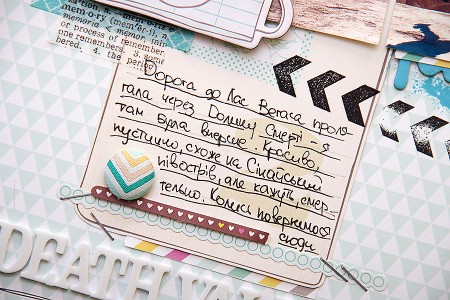 mem·o·ry
memoria < memor
or process of remember
one remembers. 3. some
bered. 4. the
the period
Дорога до Лас Вегаса проля
гала через Долину Смерті - я
там була вперше. Красиво,
пустинно, схоже на Сінайський
півострів, але кажуть, смер-
тельно. Колись повернемося
сюди
DEATH VA